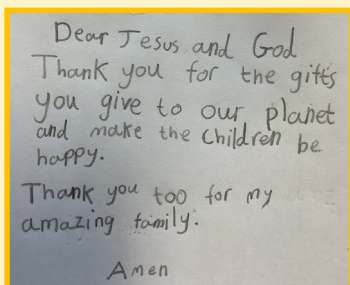 Dear Jesus and God
Thank you for the gifts
you give to our planet
and make the children be
happy.
Thank you too for my
amazing family.
Amen